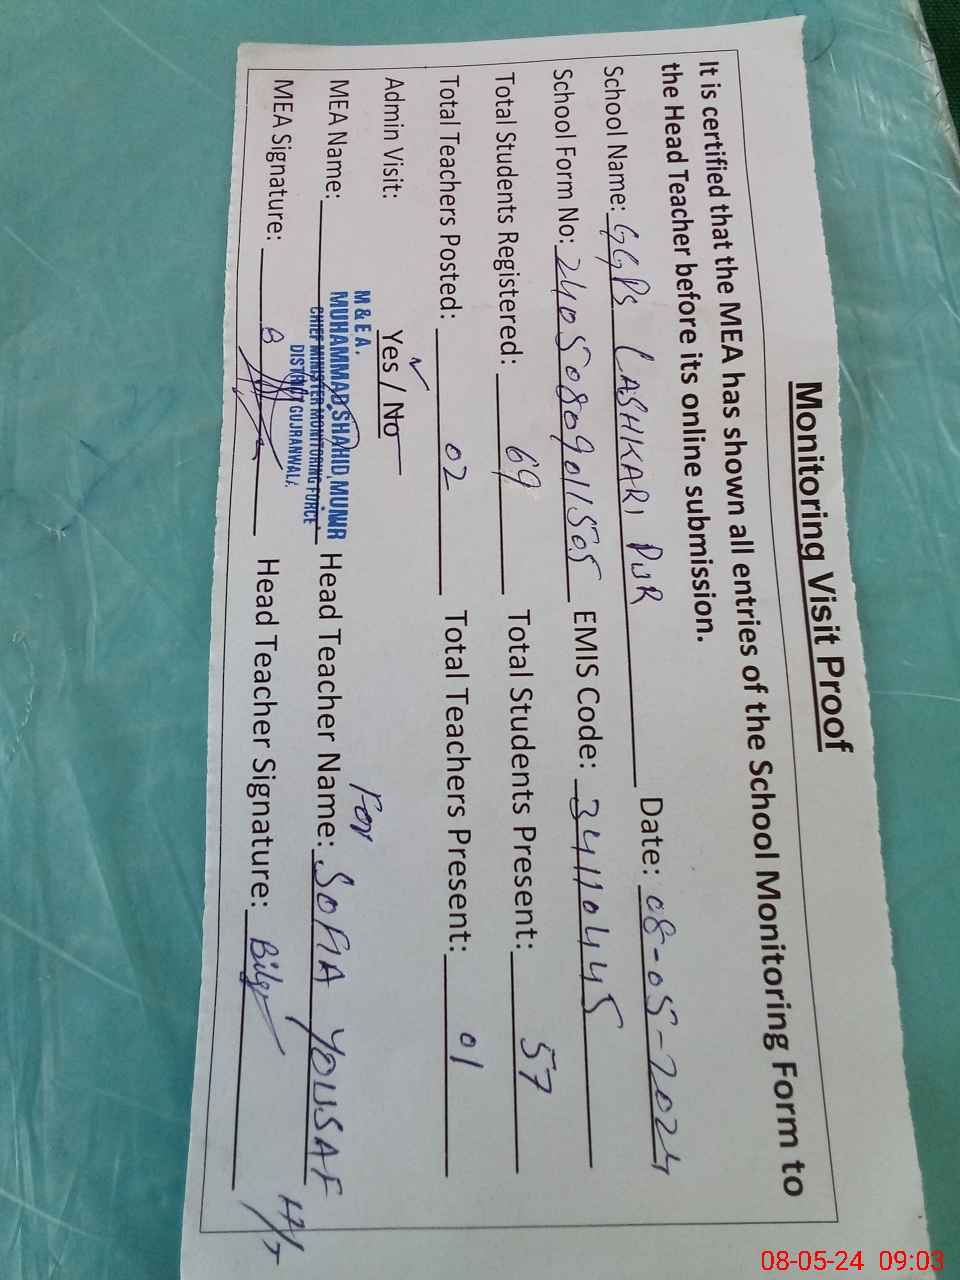 Monitoring Visit Proof
It is certified that the MEA has shown all entries of the School Monitoring Form to
the Head Teacher before its online submission.
School Name: GGPS LASHKARI PUR Date: 08-05-2024
School Form No: 24050809011505 EMIS Code: 34110445
Total Students Registered: 69 Total Students Present: 57
Total Teachers Posted: 02 Total Teachers Present: 01
Admin Visit: Yes / No
For
M & E A.
MEA Name: MUHAMMAD SHAHID MUNIR Head Teacher Name: SOFIA YOUSAF
CHIEF MINISTER MONITORING FORCE
DISTRICT GUJRANWALA.
MEA Signature: Head Teacher Signature:
H/T
08-05-24 09:03